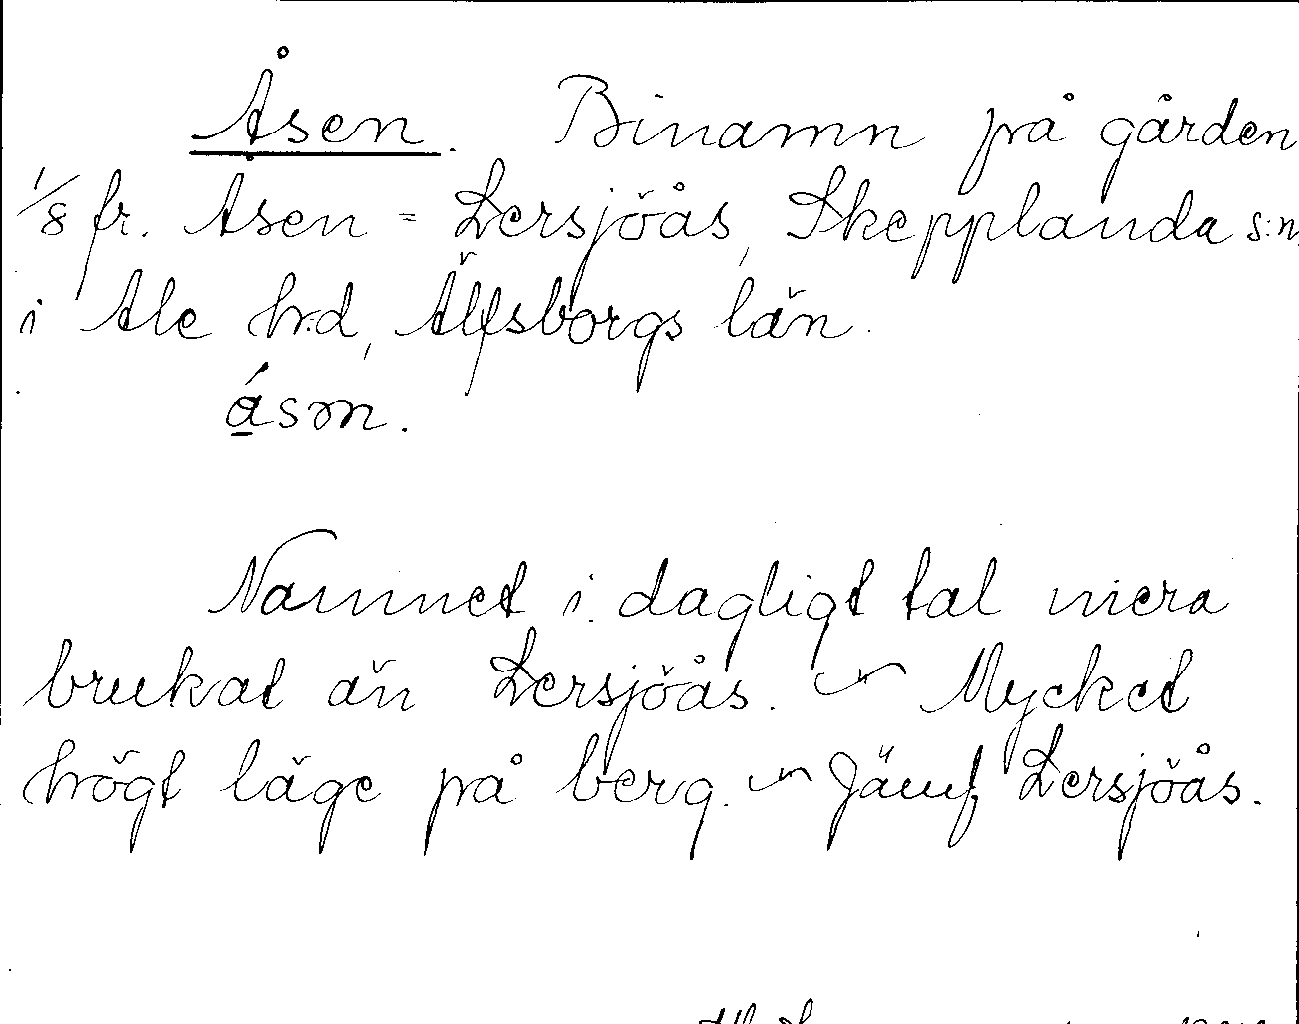 Åsen. Binamn på gården
1/8 fr. Åsen = Lersjöås, Skepplanda s:n
i Ale h:d, Älfsborgs län.
ásm.
Namnet i dagligt tal mera
brukat än Lersjöås. ~ Mycket
högt läge på berg. ~ Jämf. Lersjöås.